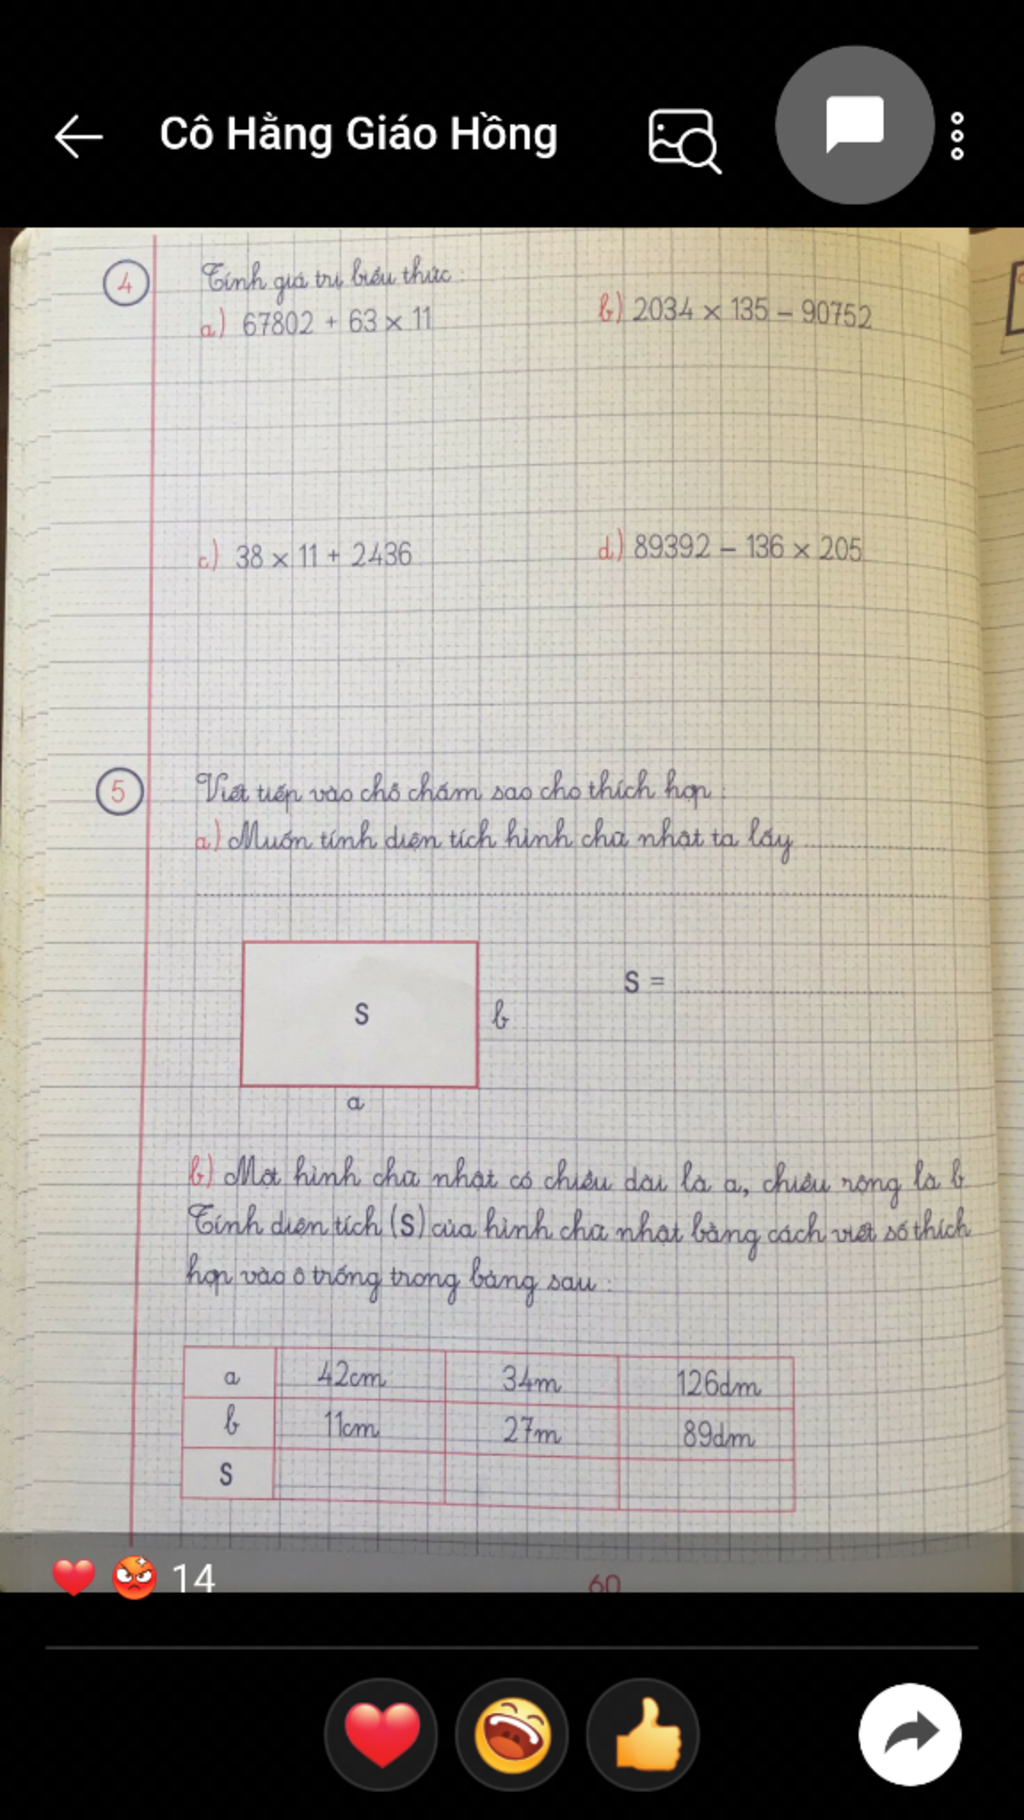 Cô Hằng Giáo Hồng
4 Tính giá trị biểu thức :
a) 67802 + 63 × 11 b) 2034 × 135 – 90752
c) 38 × 11 + 2436 d) 89392 – 136 × 205
5 Viết tiếp vào chỗ chấm sao cho thích hợp :
a) Muốn tính diện tích hình chữ nhật ta lấy ....................
................................................................................
S
b
S = ..............................
a
b) Một hình chữ nhật có chiều dài là a, chiều rộng là b
Tính diện tích (S) của hình chữ nhật bằng cách viết số thích
hợp vào ô trống trong bảng sau :
a 42cm 34m 126dm
b 11cm 27m 89dm
S
14
60